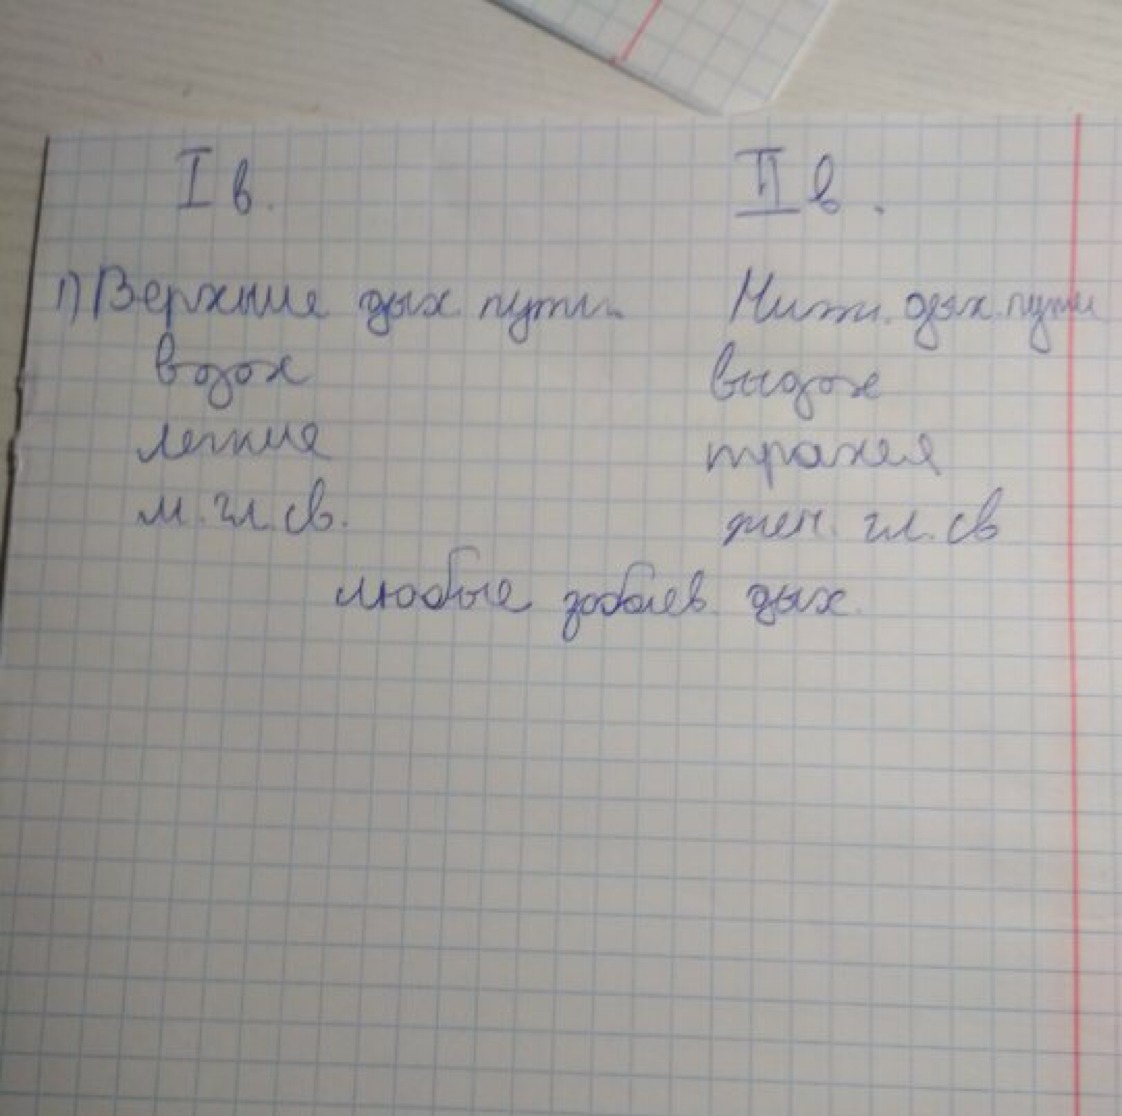 I в. II в.
1) Верхние дых. пути. Нижн. дых. пути
вдох выдох
легкие трахея
м. гл. св. жен. гл. св
любые заболев. дых.